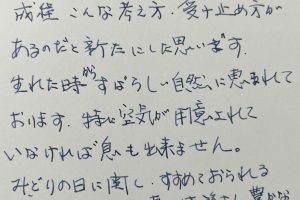 成程 こんな考え方.受け止め方が
あるのだと新たにした思います.
生れた時からすばらしい自然に恵まれて
おります.特に空気が用意されて
いなければ息も出来ません。
みどりの日に関し.すすめておられる